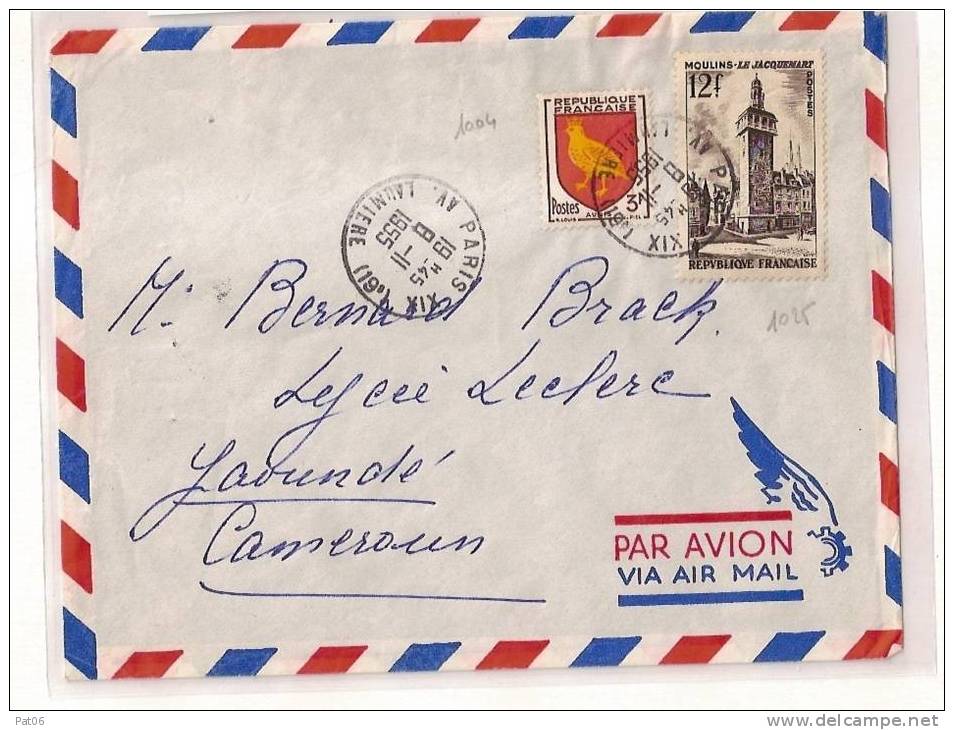 1004
REPUBLIQUE
FRANCAISE
Postes
3F
MOULINS-LE JACQUEMART
12f
POSTES
REPVBLIQUE FRANÇAISE
1025
PARIS XIX
AV. LAUMIERE (19e)
19H45
8-11
1955
PARIS XIX
1955
M. Bernard Brack.
Lycée Leclerc
Yaoundé
Cameroun
PAR AVION
VIA AIR MAIL
Pat06
www.delcampe.net